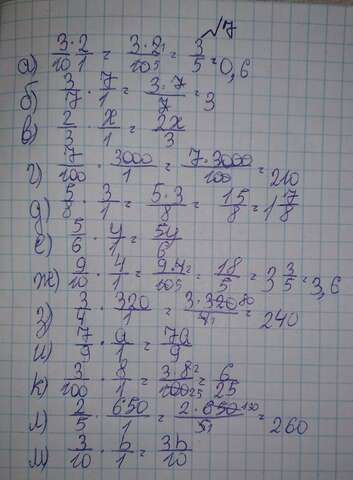 √7
а) 3·2/10·1 = 3·2 1/10 5 = 3/5 = 0,6
б) 3/7 · 7/1 = 3·7/7 = 3
в) 2/3 · x/1 = 2x/3
г) 7/100 · 3000/1 = 7·3000/100 = 210
д) 5/8 · 3/1 = 5·3/8 = 15/8 = 1 7/8
е) 5/6 · y/1 = 5y/6
ж) 9/10 · 4/1 = 9·4 2/10 5 = 18/5 = 3 3/5 = 3,6
з) 3/4 · 320/1 = 3·320 80/4 1 = 240
и) 7/9 · a/1 = 7a/9
к) 3/100 · 8/1 = 3·8 2/100 25 = 6/25
л) 2/5 · 650/1 = 2·650 130/5 1 = 260
м) 3/10 · b/1 = 3b/10